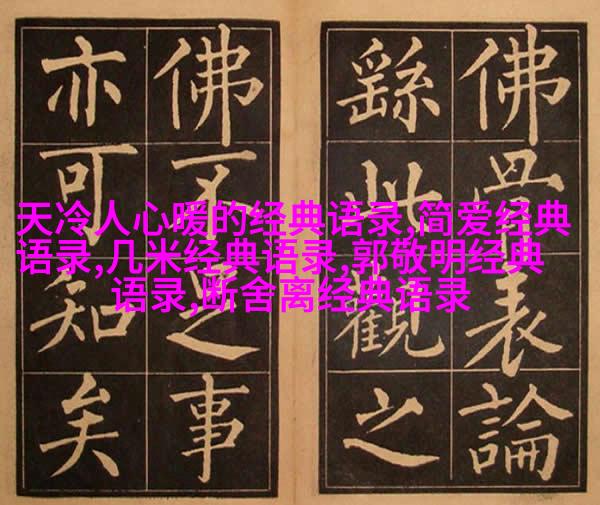 佛骨表論
繇此觀之
佛不足事
亦可知矣
天冷人心暖的经典语录,简爱经典
语录,几米经典语录,郭敬明经典
语录,断舍离经典语录